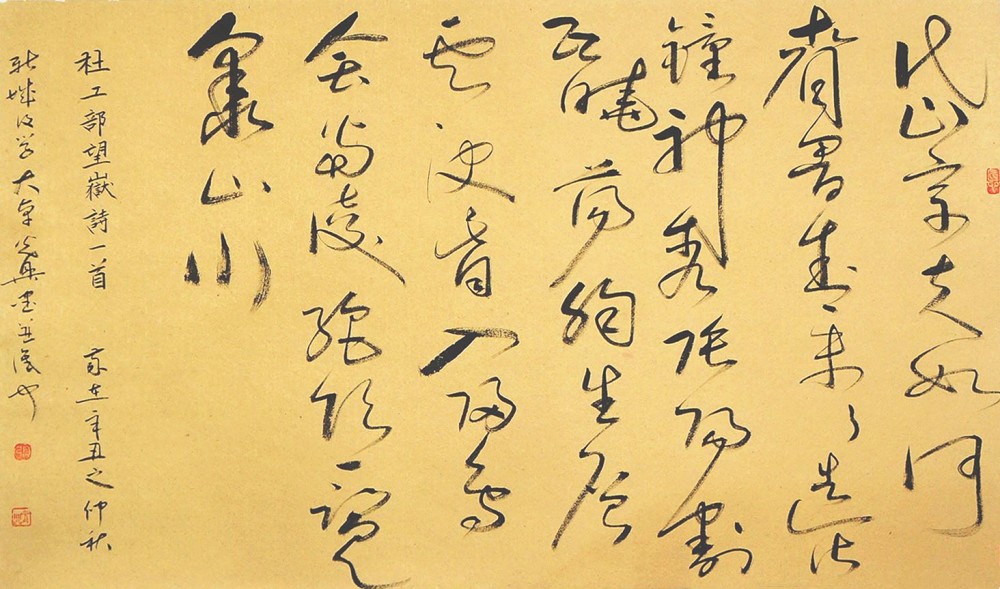 岱宗夫如何
齊魯青未了造化
鐘神秀陰陽割
昏曉蕩胸生層
雲決眥入歸鳥
會當凌絕頂一覽
衆山小
杜工部望嶽詩一首 歲在辛丑之仲秋
後学大